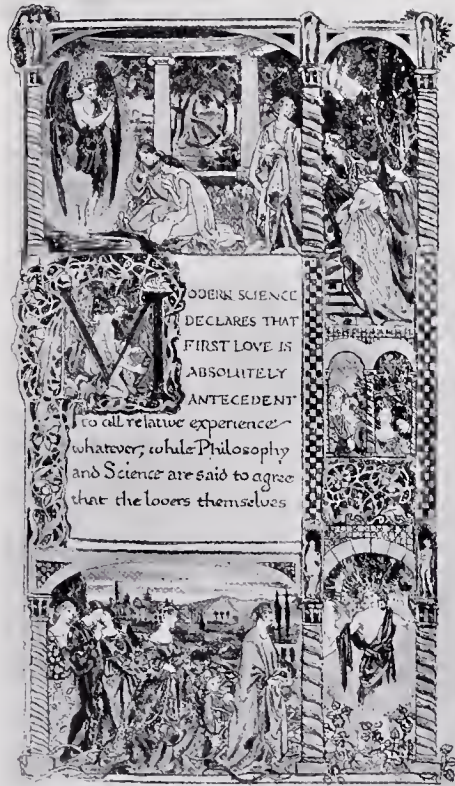 MODERN SCIENCE
DECLARES THAT
FIRST LOVE IS
ABSOLUTELY
ANTECEDENT
to all relative experience
whatever, while Philosophy
and Science are said to agree
that the lovers themselves